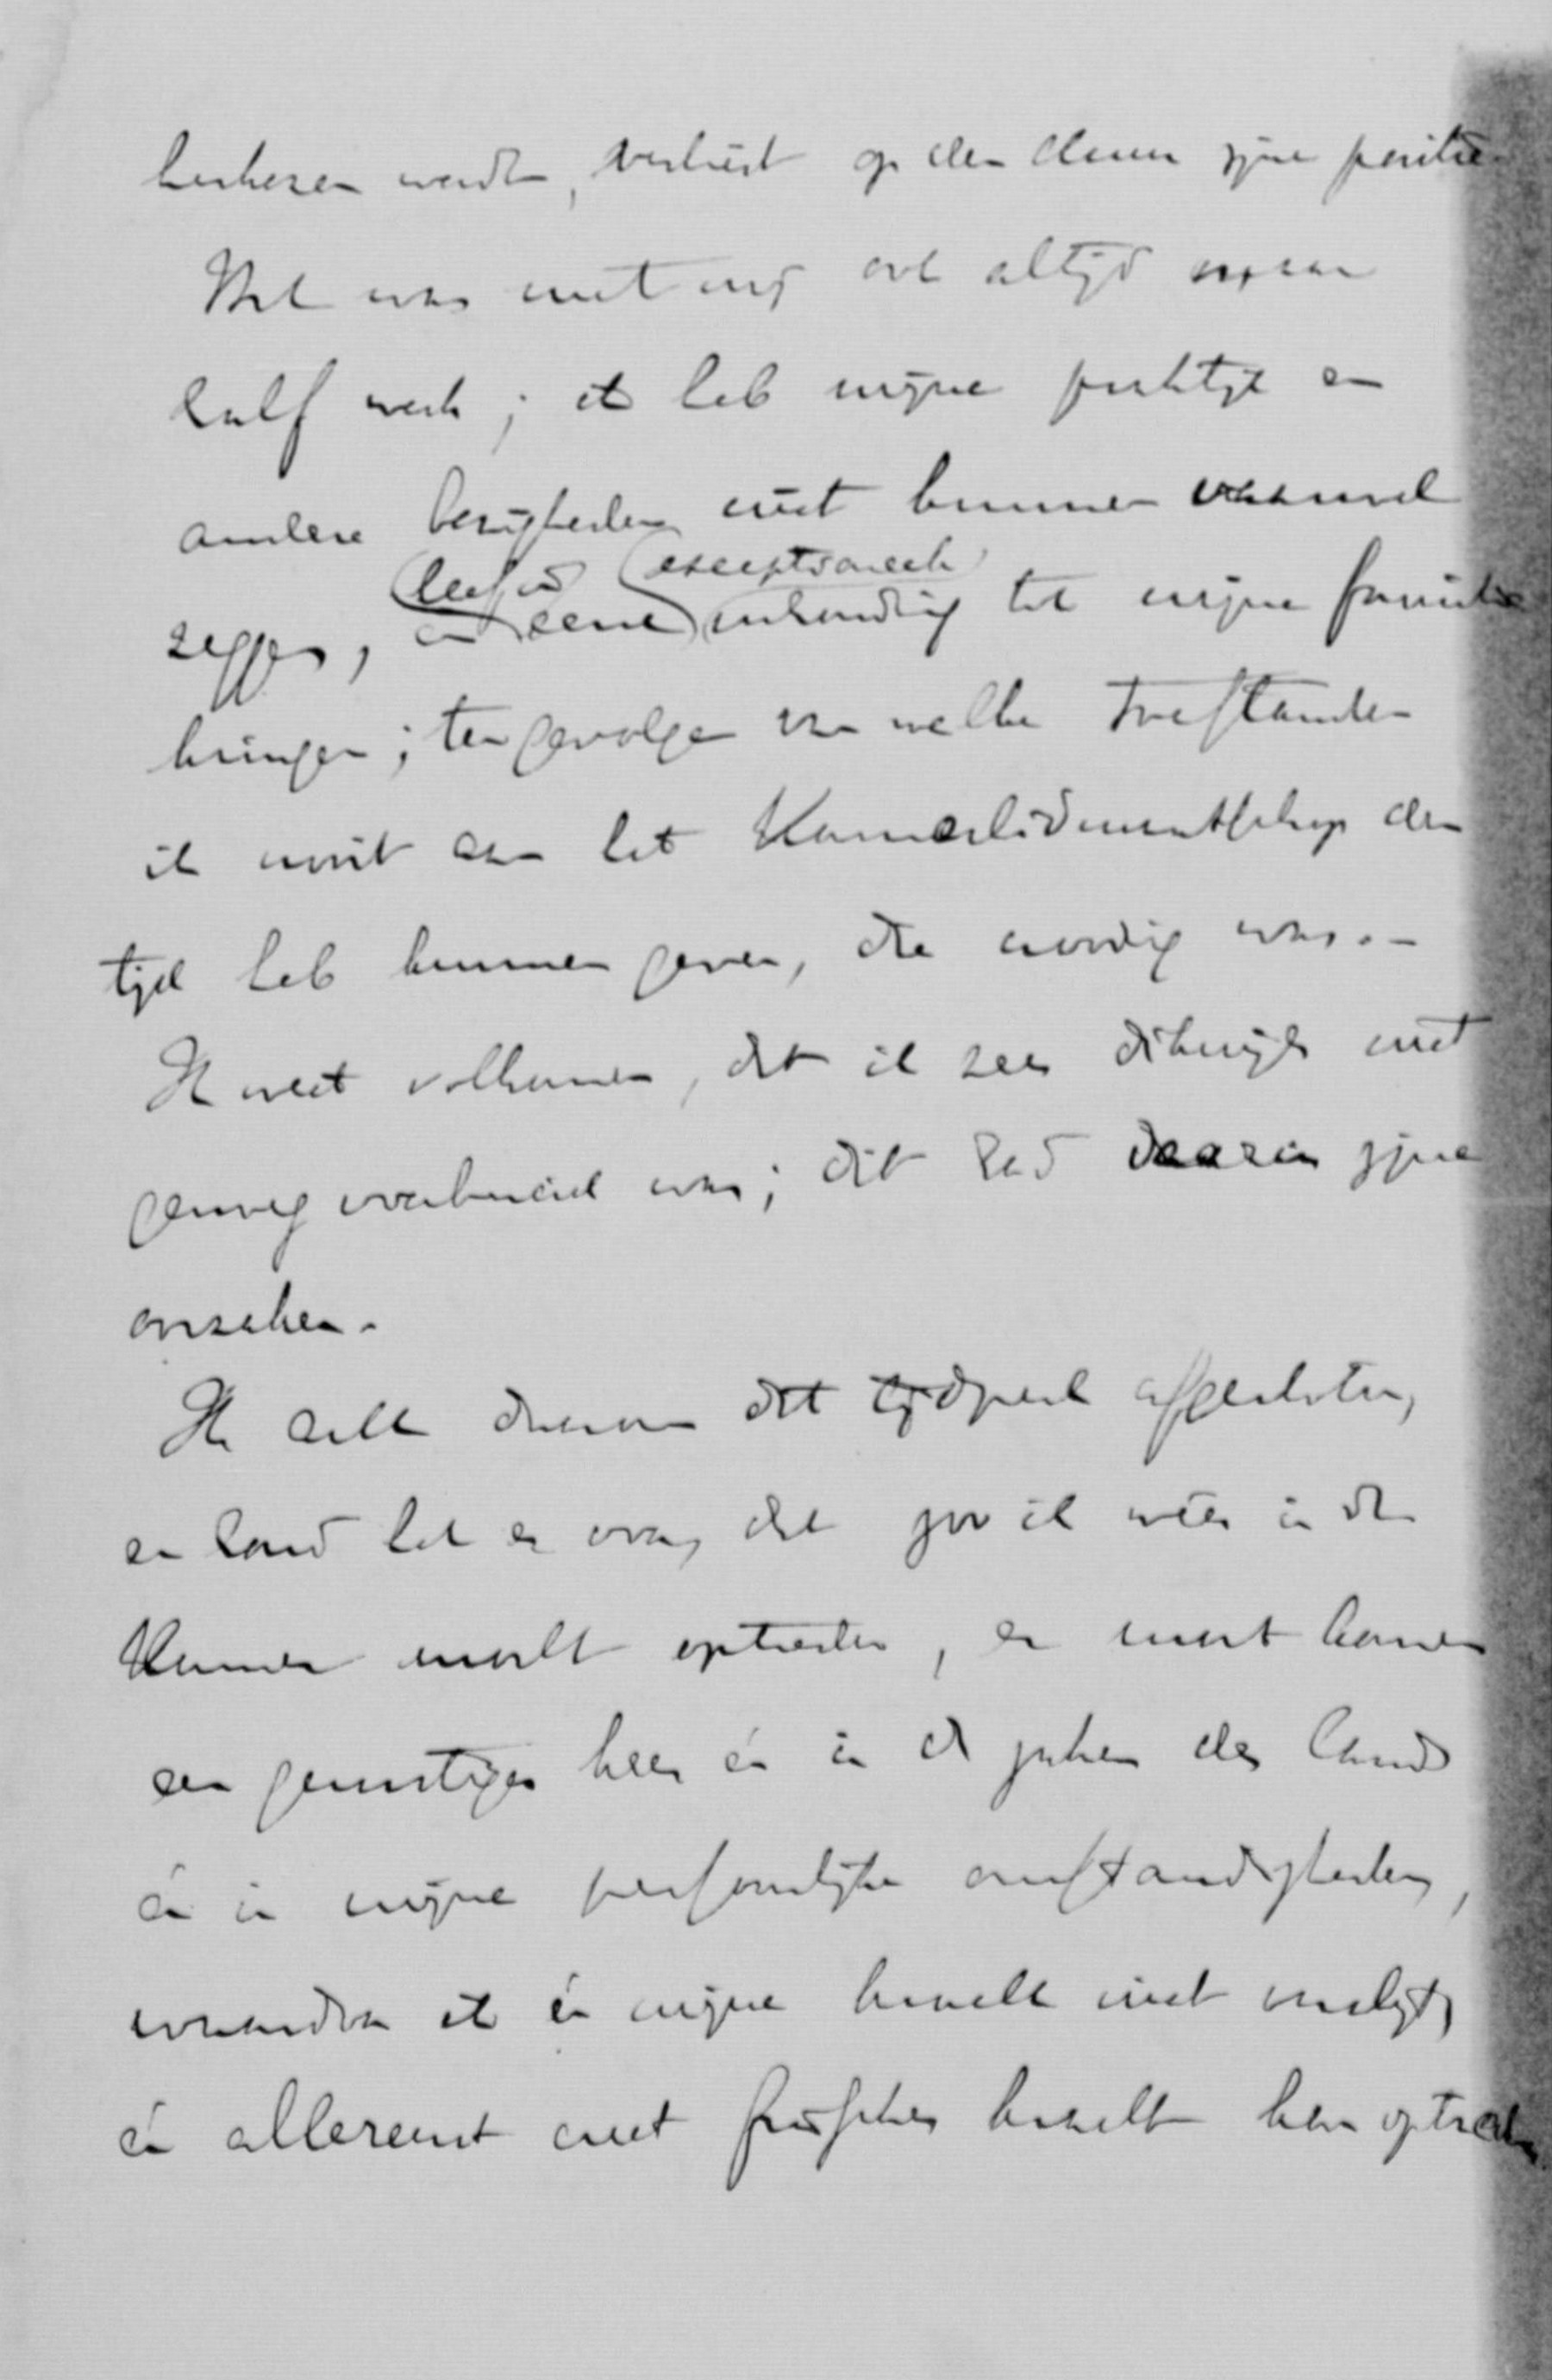 herkozen wordt, verliest op den duur zijne positie.
Het was met mij ook altijd maar
half werk; ik heb mijne praktijk en
andere bezigheden niet kunnen vaarwel
zeggen,
leef exceptioneel
en eene tot mijne familie
brengen; ten gevolge van welke toestanden
ik nooit aan het Kamerlidmaatschap den
tijd heb kunnen geven, die noodig was. –
Ik weet volkomen, dat ik zeer dikwijls niet
genoeg voorbereid was; dit had daarin zijne
oorzaken.
Ik acht daarom dat tijdperk afgesloten,
en houd het er voor, dat zoo ik weer in de
Kamer mocht optreden, er moet komen
een gunstiger keer én in de zaken des lands
én in mijne persoonlijke omstandigheden,
waardoor ik én mijne kracht niet
én allereerst met frissche kracht kan optreden.